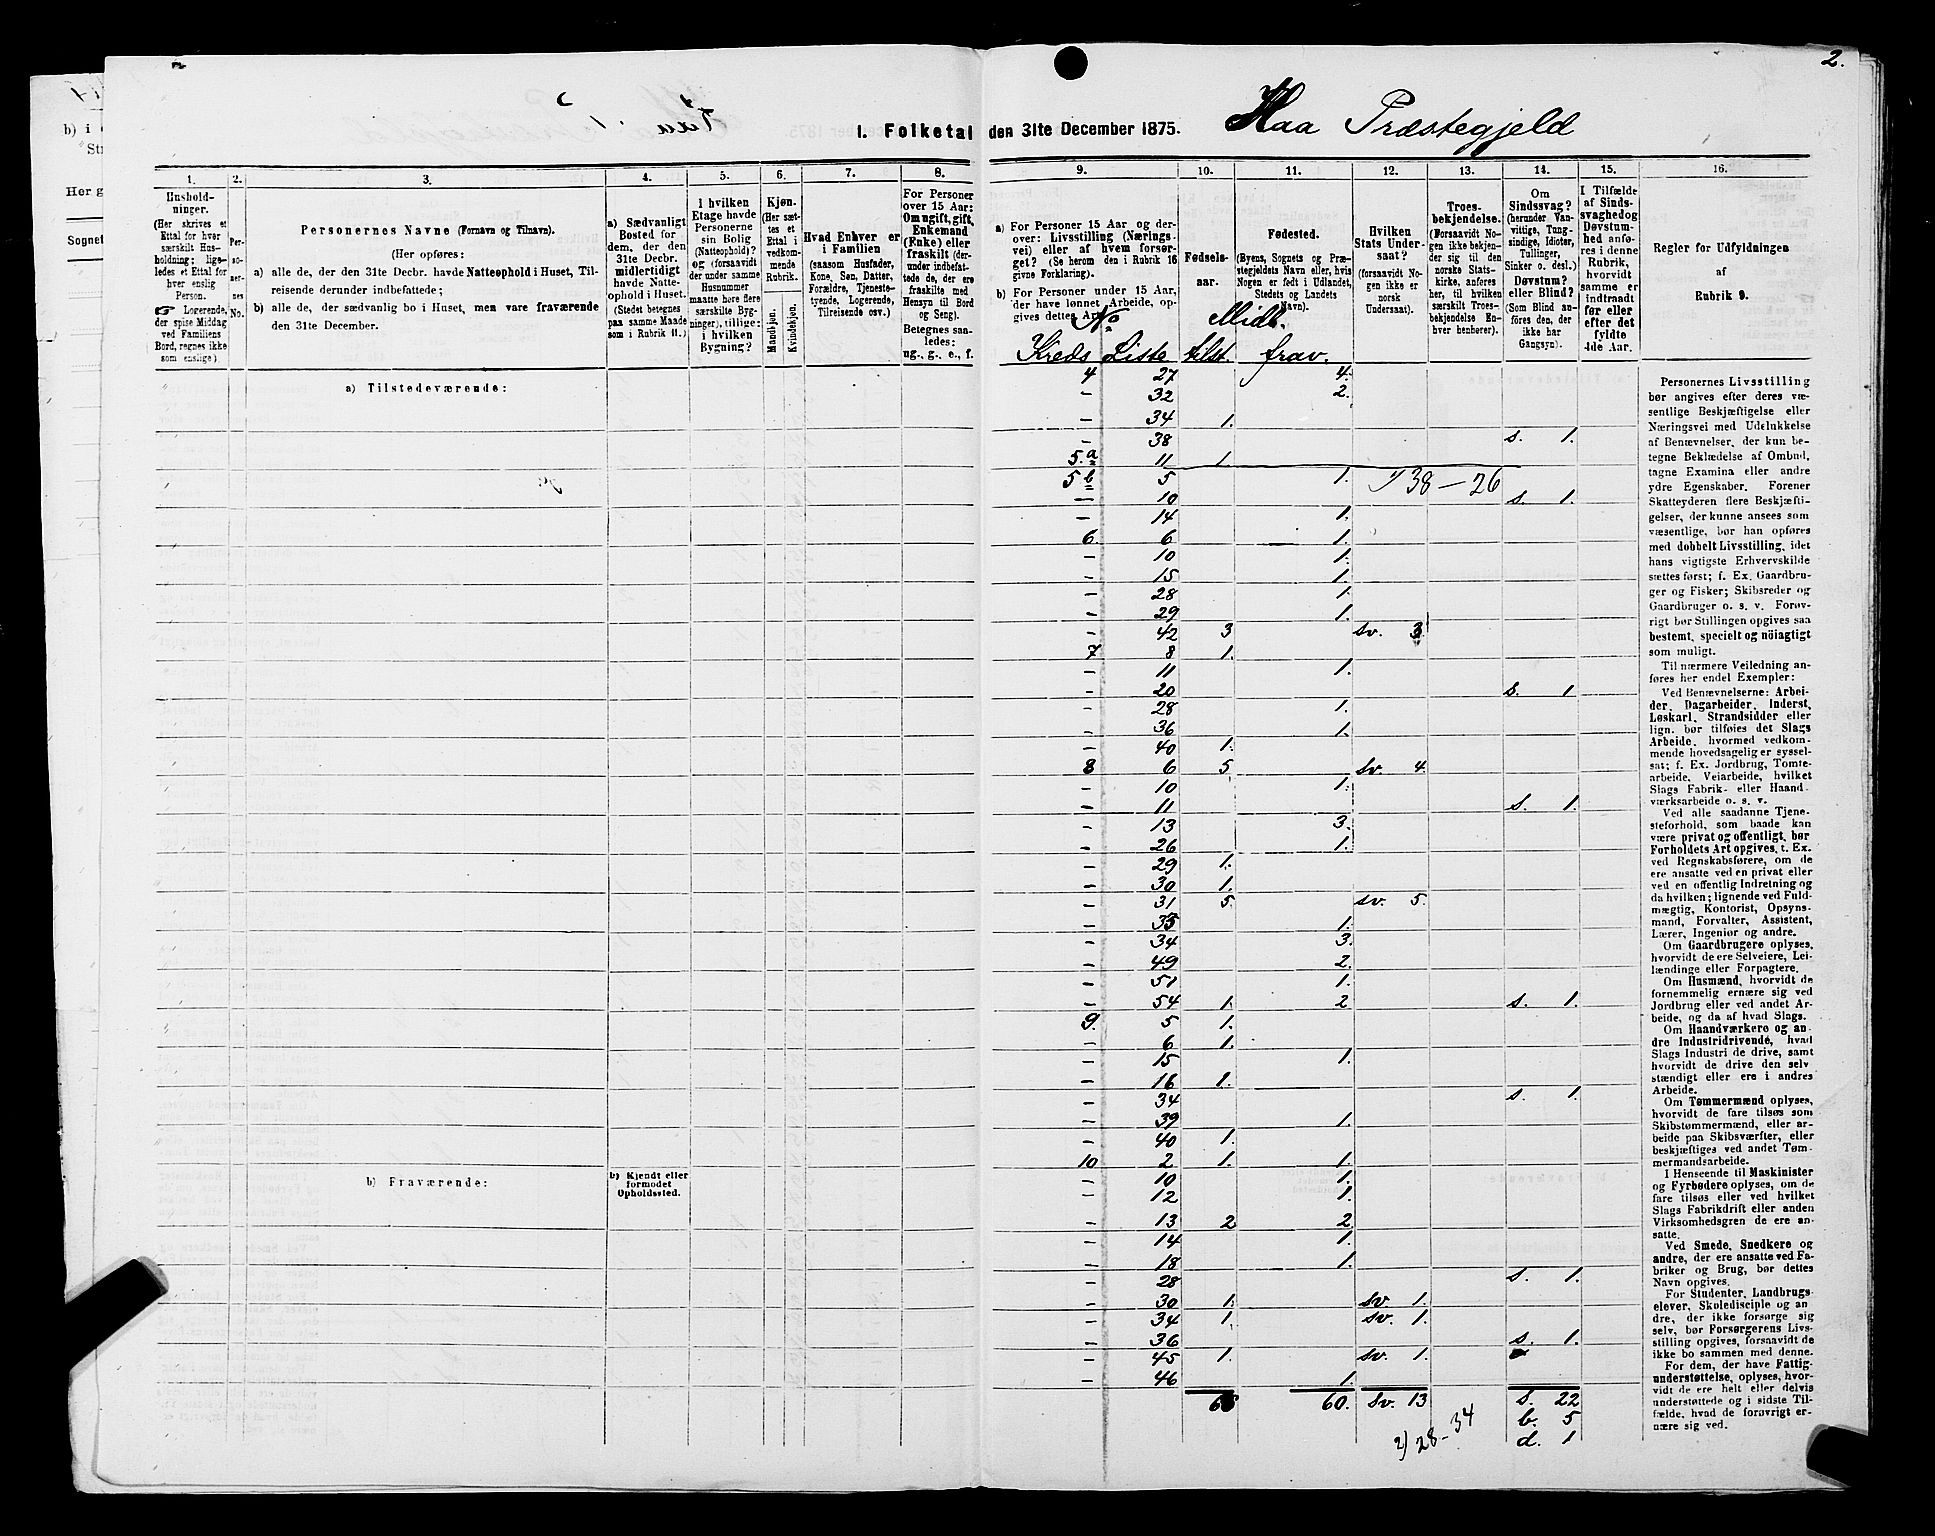 2.
I. Folketal den 31te December 1875. Haa Præstegjeld
b) i
Her g
Sognet
1. 2. 3. 4. 5. 6. 7. 8. 9. 10. 11. 12. 13. 14. 15. 16.
Husholdninger.
(Her skrives et Ettal for hver særskilt Husholdning; ligeledes et Ettal for hver enslig Person.
☞ Logerende, der spise Middag ved Familiens Bord, regnes ikke som enslige).
Personernes No.
Personernes Navne (Fornavn og Tilnavn).
(Her opføres:
a) alle de, der den 31te Decbr. havde Natteophold i Huset, Tilreisende derunder indbefattede;
b) alle de, der sædvanlig bo i Huset, men vare fraværende den 31te December.
a) Sædvanligt Bosted for dem, der den 31te Decbr. midlertidigt havde Natteophold i Huset. (Stedet betegnes paa samme Maade som i Rubrik 11.)
I hvilken Etage havde Personerne sin Bolig (Natteophold)? og (forsaavidt der under samme Husnummer maatte høre flere særskilte Bygninger), tillige: i hvilken Bygning?
Kjøn.
(Her sættes et Ettal i vedkommende Rubrik.
Mandkjøn.
Kvindekjøn.
Hvad Enhver er i Familien
(saasom Husfader, Kone, Søn, Datter, Forældre, Tjenestetyende, Logerende, Tilreisende osv.)
For Personer over 15 Aar: Om ugift, gift, Enkemand (Enke) eller fraskilt (derunder indbefattede, de, der ere fraskilte med Hensyn til Bord og Seng).
Betegnes saaledes:
ug., g., e., f.
a) For Personer 15 Aar og derover: Livsstilling (Næringsvei) eller af hvem forsørget? (Se herom den i Rubrik 16 givne Forklaring).
b) For Personer under 15 Aar, der have lønnet Arbeide, opgives dettes Art.
Fødselsaar.
Fødested.
(Byens, Sognets og Præstegjeldets Navn eller, hvis Nogen er født i Udlandet, Stedets og Landets Navn).
Hvilken Stats Undersaat?
(forsaavidt Nogen ikke er norsk Undersaat).
Troesbekjendelse.
(Forsaavidt Nogen ikke bekjender sig til den norske Statskirke, anføres her, til hvilket særskilt Troesbekjendelse Enhver henhører).
Om Sindssvag? (herunder Vanvittige, Tungsindige, Idioter, Tullinger, Sinker o. desl.) Døvstum? eller Blind?
(Som Blind anføres den, der ikke har Gangsyn).
I Tilfælde af Sindssvaghed og Døvstumhed anføres i denne Rubrik, hvorvidt samme er indtraadt før eller efter det fyldte 4de Aar.
Regler for Udfyldningen
af
Rubrik 9.
No Midl.
Kreds Liste tilst. frav.
a) Tilstedeværende:
4 27 4.
- 32 2.
- 34 1.
- 38 s. 1.
5.a 11 1.
5 b 5 1. 1) 38-26
- 10 s. 1.
- 14 1.
6. 6 1.
- 10 1.
- 15 1.
- 28 1.
- 29 1.
- 42 3 sv. 3
7 8 1.
- 11 1.
- 20 s. 1
- 28 1.
- 36 1.
- 40 1.
8 6 5 sv. 4
- 10 1.
- 11 s. 1.
- 13 3.
- 26 1.
- 29 1.
- 30 1.
- 31 5. sv. 5.
- 33 1.
- 34 3.
- 49 2.
- 51 1.
- 54 1. 2 s. 1.
9. 5 1.
- 6 1.
- 15 1.
- 16 1.
- 34 s. 1.
- 39 1.
- 40 1.
10 2 1. 1.
- 10 1.
- 12 1.
- 13 2 2.
- 14 1.
- 18 1.
- 28 s. 1.
- 30 1. sv. 1.
- 34 1. sv. 1.
- 36 s. 1.
- 45 1. sv. 1.
- 46 1.
60. sv. 13 s. 22
b. 5
d. 1
2) 28-34
b) Fraværende:
b) Kjendt eller formodet Opholdssted.
Personernes Livsstilling bør angives efter deres væsentlige Beskjæftigelse eller Næringsvei med Udelukkelse af Benævnelser, der kun betegne Beklædelse af Ombud, tagne Examina eller andre ydre Egenskaber. Forener Skatteyderen flere Beskjæftigelser, der kunne ansees som væsentlige, bør han opføres med dobbelt Livsstilling, idet hans vigtigste Erhvervskilde sættes først; f. Ex. Gaardbruger og Fisker; Skibsreder og Gaardbruger o. s. v. Forøvrigt bør Stillingen opgives saa bestemt, specielt og nöiagtigt som muligt.
Til nærmere Veiledning anføres her endel Exempler:
Ved Benævnelserne: Arbeider, Dagarbeider, Inderst, Løskarl, Strandsidder eller lign. bør tilføies det Slags Arbeide, hvormed vedkommende hovedsagelig er sysselsat; f. Ex. Jordbrug, Tomtearbeide, Veiarbeide, hvilket Slags Fabrik- eller Haandværksarbeide o. s. v.
Ved alle saadanne Tjenesteforhold, som baade kan være privat og offentligt, bør Forholdets Art opgives, t. Ex. ved Regnskabsførere, om de ere ansatte ved en privat eller ved en offentlig Indretning og da hvilken; lignende ved Fuldmægtig, Kontorist, Opsynsmand, Forvalter, Assistent, Lærer, Ingeniør og andre.
Om Gaardbrugere oplyses, hvorvidt de ere Selveiere, Leilændinge eller Forpagtere.
Om Husmænd, hvorvidt de fornemmelig ernære sig ved Jordbrug eller ved andet Arbeide, og da af hvad Slags.
Om Haandværkere og andre Industridrivende, hvad Slags Industri de drive, samt hvorvidt de drive den selvstændigt eller ere i andres Arbeide.
Om Tømmermænd oplyses, hvorvidt de fare tilsøs som Skibstømmermænd, eller arbeide paa Skibsværfter, eller beskjæftiges ved andet Tømmermandsarbeide.
I Henseende til Maskinister og Fyrbødere oplyses, om de fare tilsøs eller ved hvilket Slags Fabrikdrift eller anden Virksomhedsgren de ere ansatte.
Ved Smede, Snedkere og andre, der ere ansatte ved Fabriker og Brug, bør dettes Navn opgives.
For Studenter, Landbrugselever, Skoledisciple og andre, der ikke forsørge sig selv, bør Forsørgerens Livsstilling opgives, forsaavidt de ikke bo sammen med denne.
For dem, der have Fattigunderstøttelse, oplyses, hvorvidt de ere helt eller delvis understøttede og i sidste Tilfælde, hvad de forøvrigt ernære sig ved.